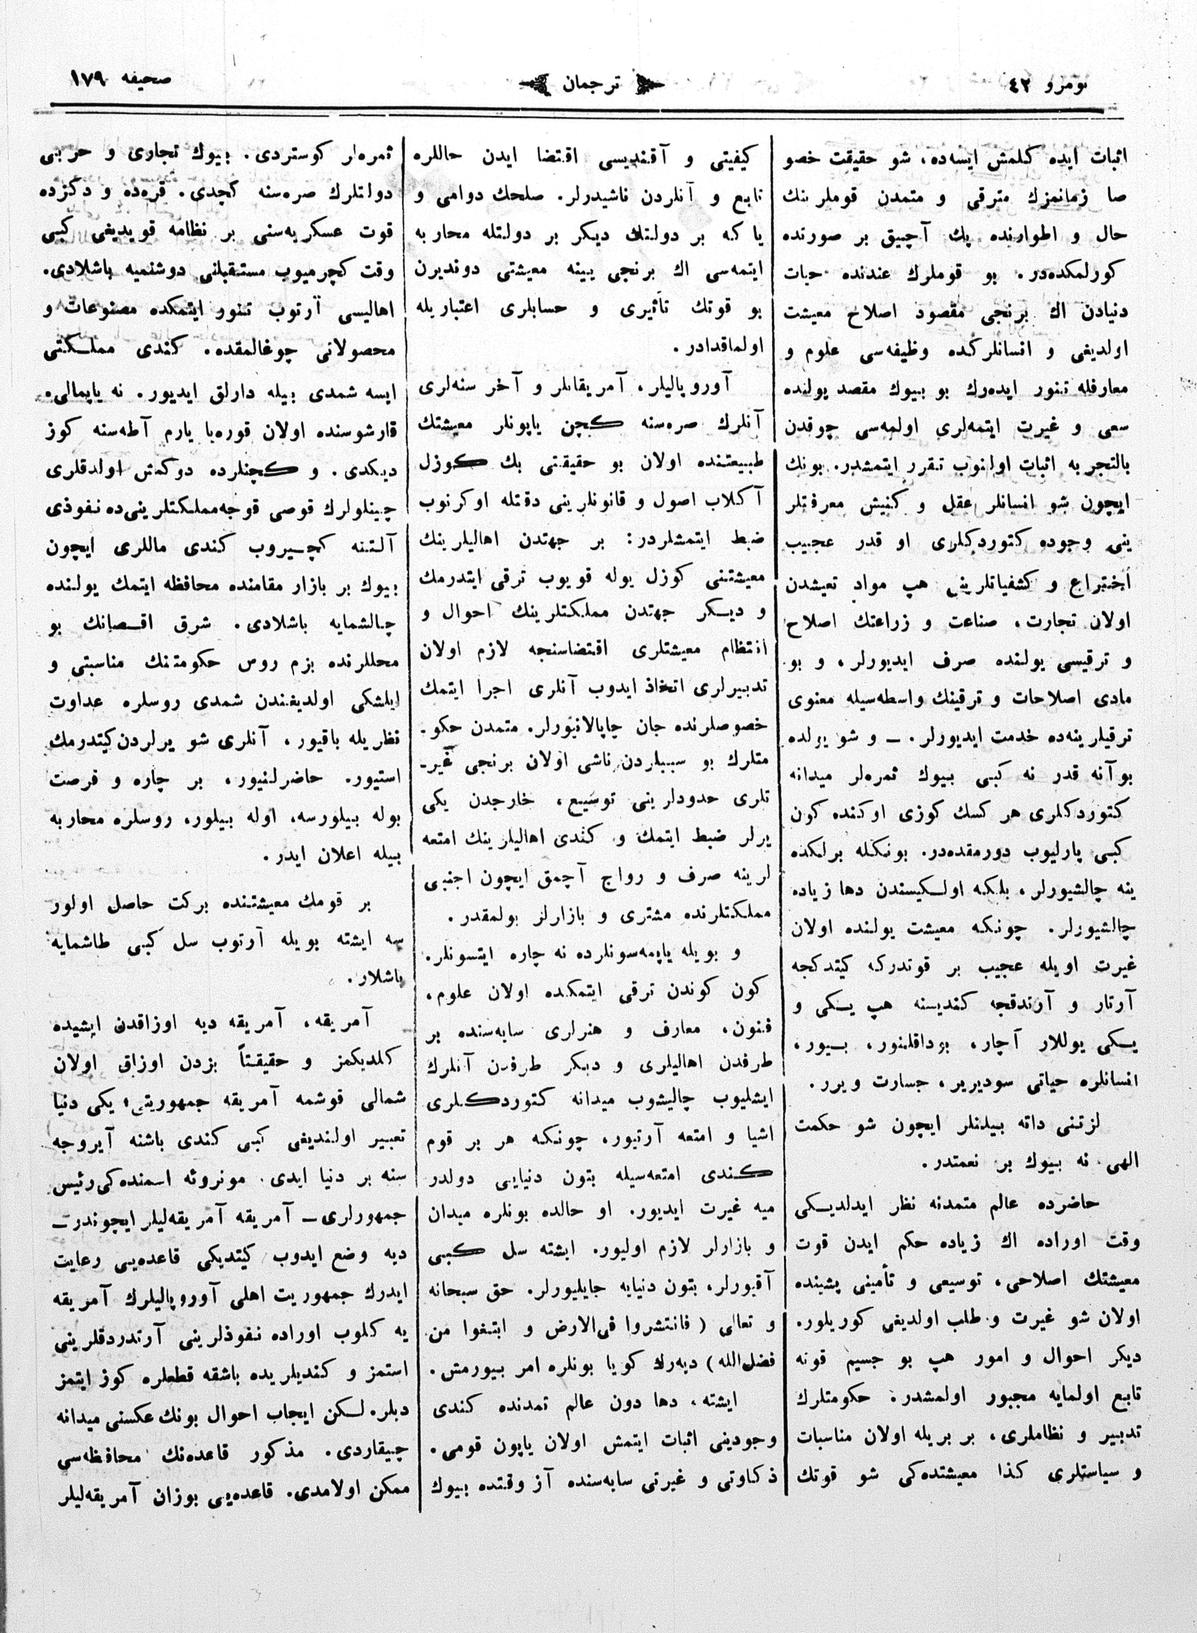 نومرو ٤٢
ترجمان
صحیفه ١٧٩
اثبات ایده کلمش ایسه‌ده، شو حقیقت خصو
صا زمانمزك مترقی و متمدن قوملرینك
حال و اطوارنده پك آچیق بر صورتده
کورلمکده‌در. بو قوملرك عندنده حیات
دنیادن اك برنجی مقصود اصلاح معیشت
اولدیغی و انسانلرکده وظیفه‌سی علوم و
معارفله تنور ایده‌رك بو بیوك مقصد یولنده
سعی و غیرت ایتمه‌لری اولمه‌سی چوقدن
بالتجربه اثبات اولنوب تقرر ایتمشدر. بونك
ایچون شو انسانلر عقل و کنیش معرفتلر
ینی وجوده کتوردکلری او قدر عجیب
اختراع و کشفیاتلرینی هپ مواد تعیشدن
اولان تجارت، صناعت و زراعتك اصلاح
و ترقیسی یولنده صرف ایدیورلر، و بو
مادی اصلاحات و ترقینك واسطه‌سیله معنوی
ترقیلرینه‌ده خدمت ایدیورلر. ـ و شو یولده
بو آنه قدر نه کبی بیوك ثمره‌لر میدانه
کتوردکلری هر کسك کوزی اوکنده کون
کبی پارلیوب دورمقده‌در. بونکله برلکده
ینه چالشیورلر، بلکه اولکیسندن دها زیاده
چالشیورلر. چونکه معیشت یولنده اولان
غیرت اویله عجیب بر قوتدرکه کیتدکجه
آرتار و آرتدقجه کندیسنه هپ یکی و
یکی یوللار آچار، بوداقلنور، بیور،
انسانلره حیاتی سودیریر، جسارت ویرر.
لزتنی داته بیلنلر ایچون شو حکمت
الهی نه بیوك بر نعمتدر.
حاضرده عالم متمدنه نظر ایدلدیکی
وقت اوراده اك زیاده حکم ایدن قوت
معیشتك اصلاحی، توسیعی و تأمینی پشینده
اولان شو غیرت و طلب اولدیغی کوریلور.
دیکر احوال و امور هپ بو جسیم قوته
تابع اولمایه مجبور اولمشدر. حکومتلرك
تدبیر و نظاملری، بر بریله اولان مناسبات
و سیاستلری کذا معیشتده‌کی شو قوتك
کیفیتی و آقندیسی اقتضا ایدن حاللره
تابع و آنلردن ناشیدرلر. صلحك دوامی و
یا که بر دولتك دیکر بر دولتله محاربه
ایتمه‌سی اك برنجی یینه معیشتی دوندیرن
بو قوتك تأثیری و حسابلری اعتباریله
اولماقدادر.
آوروپالیلر، آمریقانلر و آخر سنه‌لری
آنلرك صره‌سنه کچن یاپونلر معیشتك
طبیعتنده اولان بو حقیقتی پك کوزل
آکلاب اصول و قانونلرینی دقتله اوکرنوب
ضبط ایتمشلردر: بر جهتدن اهالیلرینك
معیشتنی کوزل یوله قویوب ترقی ایتدرمك
و دیکر جهتدن مملکتلرینك احوال و
انتظام معیشتلری اقتضاسنجه لازم اولان
تدبیرلری اتخاذ ایدوب آنلری اجرا ایتمك
خصوصلرنده جان چاپالانیورلر. متمدن حکو-
متلرك بو سببلردن ناشی اولان برنجی غیر-
تلری حدودلرینی توسیع، خارجدن یکی
یرلر ضبط ایتمك و کندی اهالیلرینك امتعه
لرینه صرف و رواج آچمق ایچون اجنبی
مملکتلرنده مشتری و بازارلر بولمقدر.
و بویله یاپمه‌سونلرده نه چاره ایتسونلر.
کون کوندن ترقی ایتمکده اولان علوم،
فنون، معارف و هنرلری سایه‌سنده بر
طرفدن اهالیلری و دیکر طرفدن آنلرك
ایشلیوب چالیشوب میدانه کتوردکلری
اشیا و امتعه آرتیور، چونکه هر بر قوم
کندی امتعه‌سیله بتون دنیایی دولدر
میه غیرت ایدیور. او حالده بونلره میدان
و بازارلر لازم اولیور. ایشته سل کبی
آقیورلر، بتون دنیایه جایلیورلر. حق سبحانه
و تعالی (فانتشروا فی‌الارض و ابتغوا من
فضل‌الله) دیه‌رك کویا بونلره امر بیورمش.
ایشته، دها دون عالم تمدنده کندی
وجودینی اثبات ایتمش اولان یاپون قومی.
ذکاوتی و غیرتی سایه‌سنده آز وقتده بیوك
ثمره‌لر کوستردی. بیوك تجاری و حربی
دولتلرك صره‌سنه کچدی. قره‌ده و دکزده
قوت عسکریه‌سنی بر نظامه قویدیغی کبی
وقت کچرمیوب مستقبلنی دوشنمیه باشلادی.
اهالیسی آرتوب تنور ایتمکده مصنوعات و
محصولاتی چوغالمقده. کندی مملکتی
ایسه شمدی بیله دارلق ایدیور. نه یاپمالی.
قارشوسنده اولان قوره‌یا یارم آطه‌سنه کوز
دیکدی. و کچنلرده دوکمش اولدقلری
چینلولرك قوصی قوجه‌مملکتلرینی‌ده نفوذی
آلتنه کچیروب کندی ماللری ایچون
بیوك بر بازار مقامنده محافظه ایتمك یولنده
چالشمایه باشلادی. شرق اقصانك بو
محللرنده بزم روس حکومتنك مناسبتی و
ایلشکی اولدیغندن شمدی روسلره عداوت
نظریله باقیور، آنلری شو یرلردن کیتدرمك
استیور. حاضرلنیور، بر چاره و فرصت
بوله بیلورسه، اوله بیلور، روسلره محاربه
بیله اعلان ایدر.
بر قومك معیشتنده برکت حاصل اولور
سه ایشته بویله آرتوب سل کبی طاشمایه
باشلار.
آمریقه، آمریقه دیه اوزاقدن ایشیده
کلدیکمز و حقیقتاً بزدن اوزاق اولان
شمالی قوشمه آمریقه جمهوریتی؛ یکی دنیا
تعبیر اولندیغی کبی کندی باشنه آیروجه
سنه بر دنیا ایدی. مونروئه اسمنده‌کی رئیس
جمهورلری ـ آمریقه آمریقه‌لیلر ایچوندر ـ
دیه وضع ایدوب کیتدیکی قاعده‌یی رعایت
ایدرك جمهوریت اهلی آوروپالیلرك آمریقه
یه کلوب اوراده نفوذلرینی آرتدردقلرینی
استمز و کندیلریده باشقه قطعلره کوز ایتمز
دیلر. لکن ایجاب احوال بونك عکسنی میدانه
چیقاردی. مذکور قاعده‌نك محافظه‌سی
ممکن اولامدی. قاعده‌یی بوزان آمریقه‌لیلر